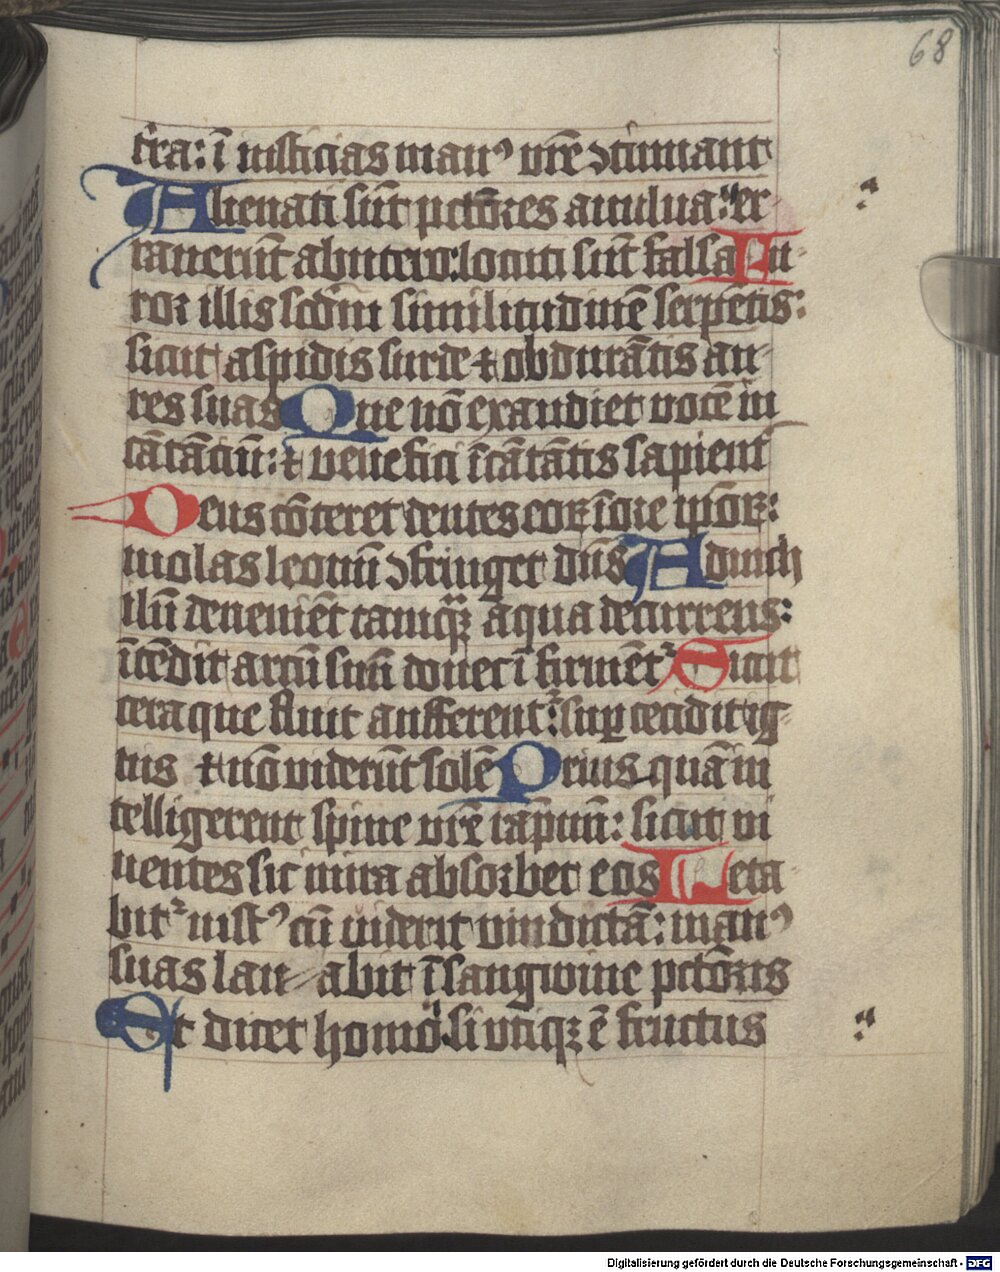 68
t̄ra: ī iusticias man⁹ vr̄e ↄcinnant
Alienati sūt pctōres auulua: er
rauerūt abutero: locuti sūt falsa Fu
ror illis scdm similitudinē serpētis:
sicut aspidis surde ⁊ obdurātis au
res suas Que nō exaudiet vocē in
cātāciū: ⁊ venefici īcātātis sapient
Deus cōteret dentes eoꝝ īore ipoꝝ:
molas leonū ↄfringet dn̄s Ad nich
ilū deuenient tamqꝫ aqua decurrens:
ītēdit arcū suū donec īfirmēt᷑ Sicut
cera que fluit aufferent᷑: suꝑ cecidit ig
nis ⁊ nō viderūt solē Prius quā in
telligerent spine vr̄e rāpnū: sicut vi
uentes sic in ira absorbet eos Leta
bit᷑ iust⁹ cū viderit vindictā: man⁹
suas lau abit ī sangwine pctōris
Et dicet homo si vtiqꝫ ē fructus
Digitalisierung gefördert durch die Deutsche Forschungsgemeinschaft - DFG